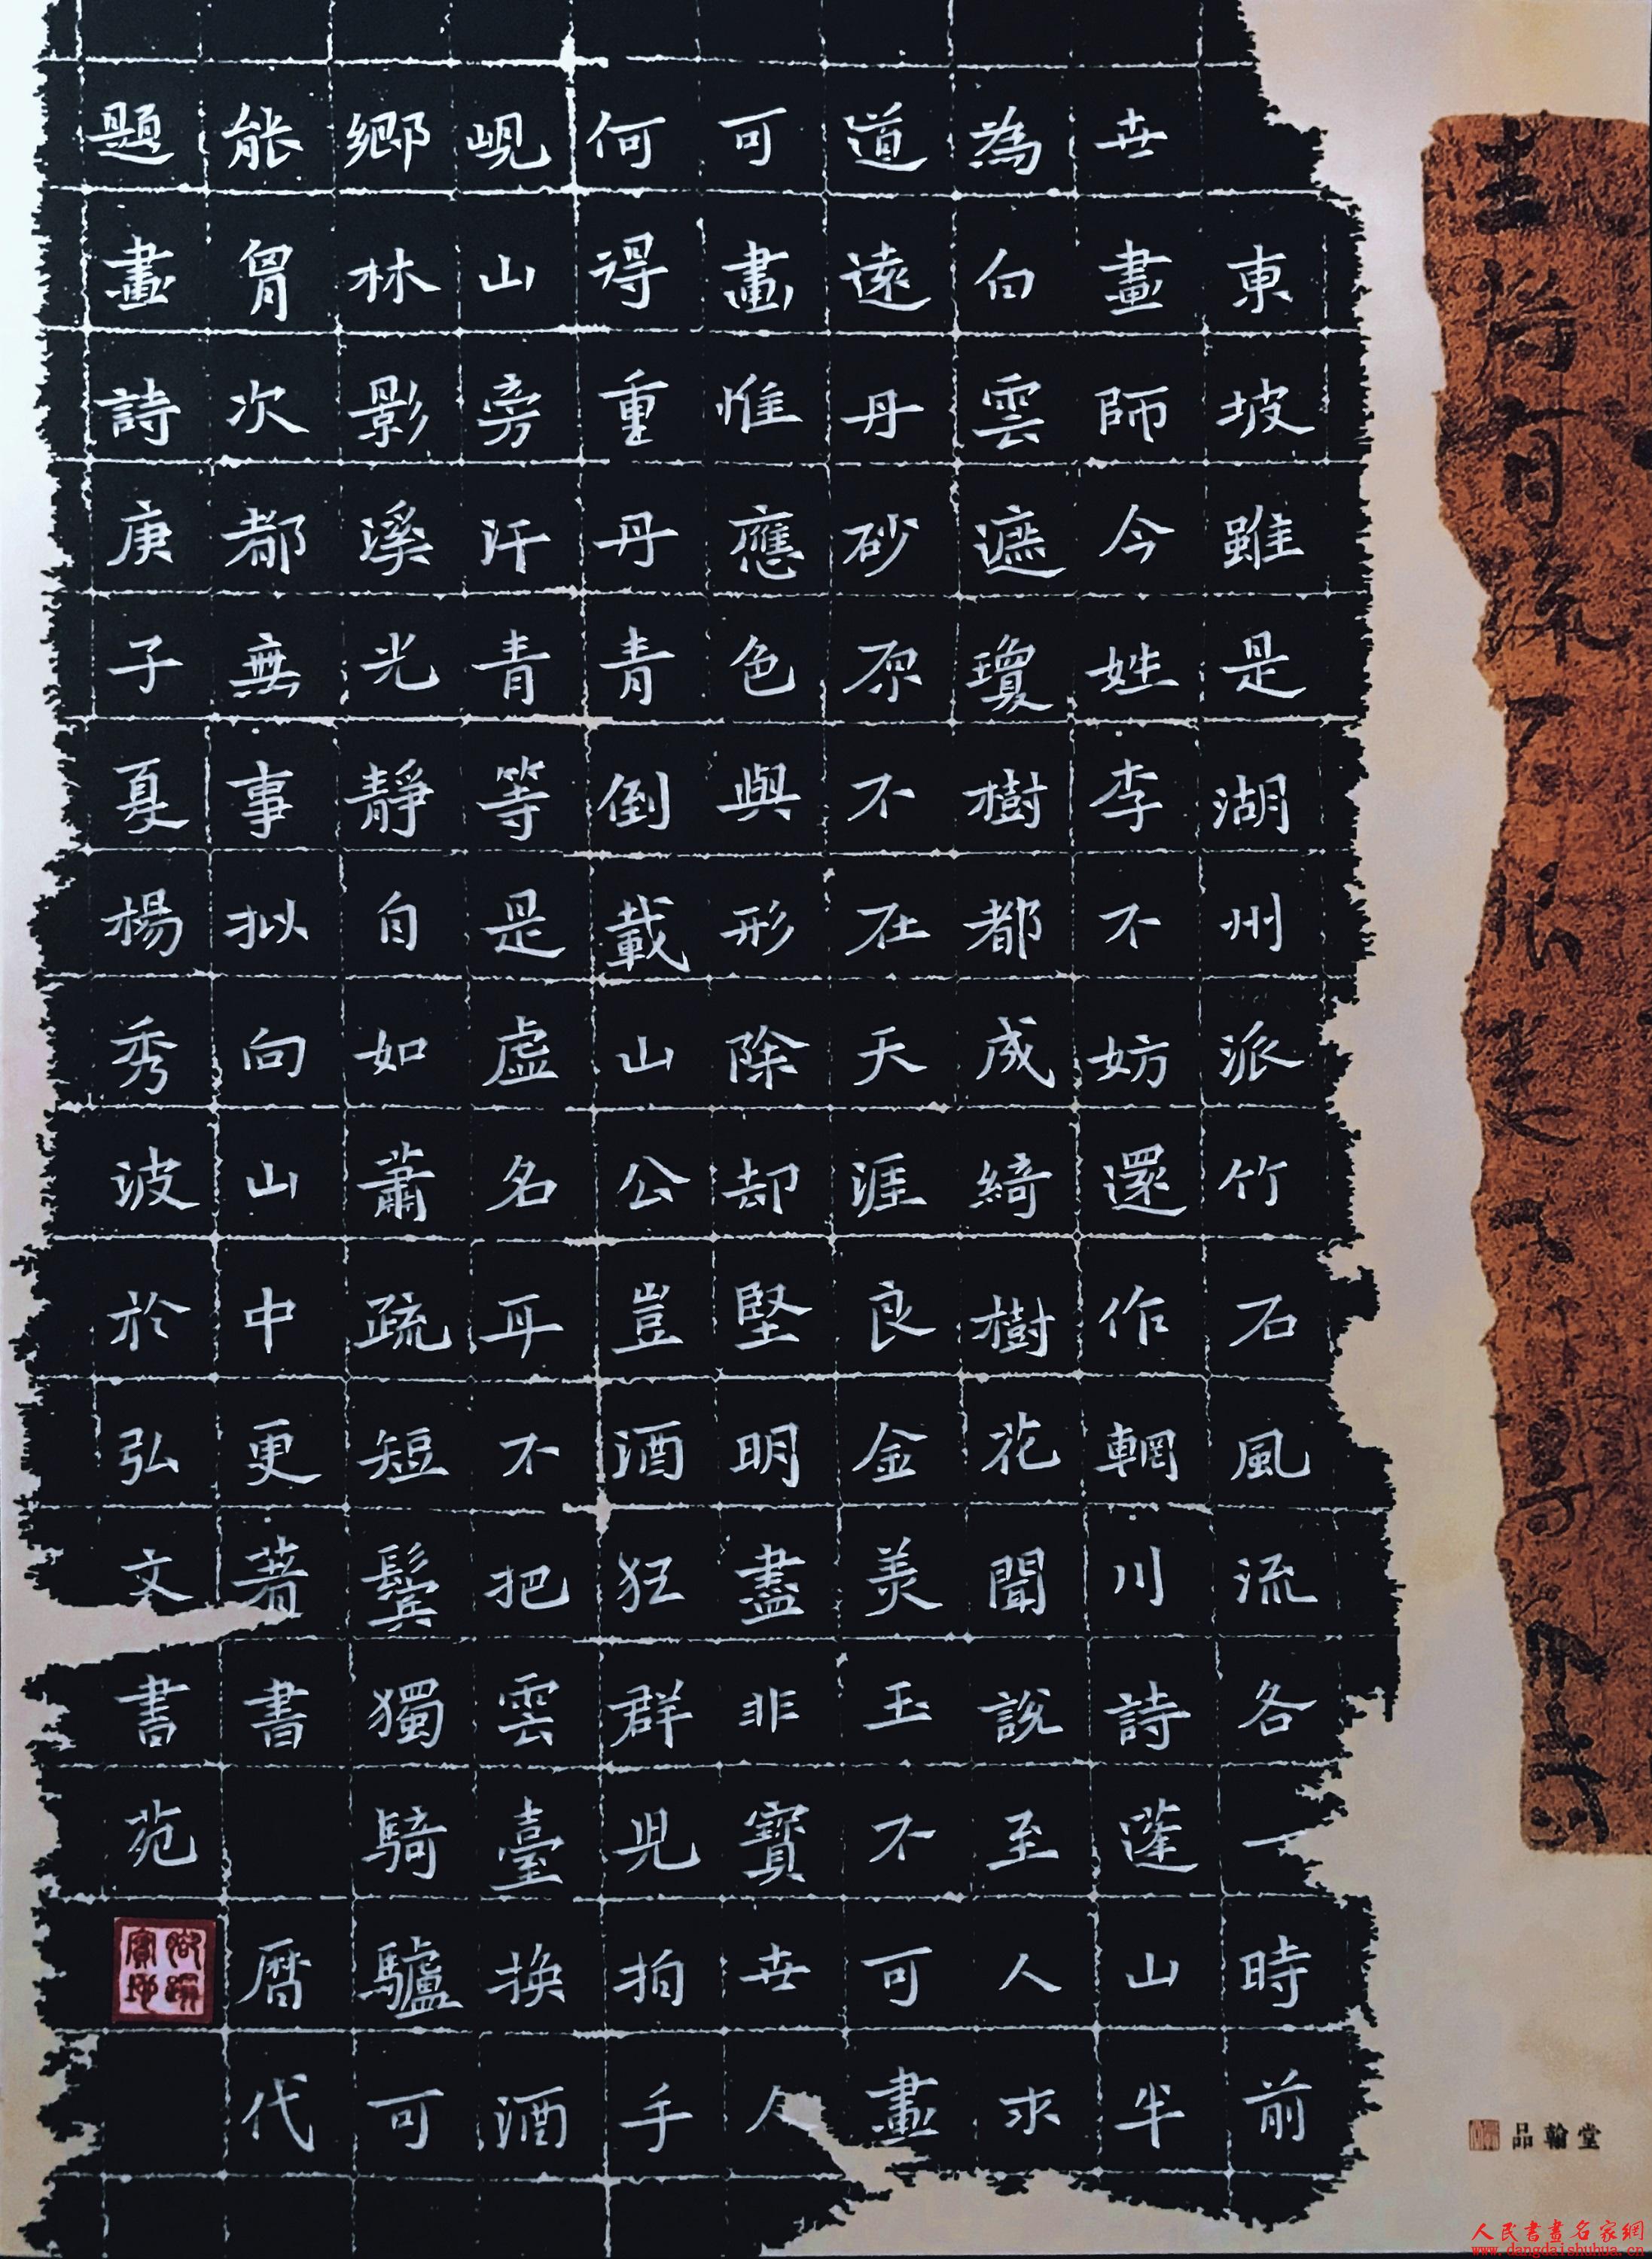 東坡雖是湖州派竹石風流各一時前
世畫師今姓李不妨還作輞川詩蓬山半
為白雲遮瓊樹都成綺樹花聞說至人求
道遠丹砂原不在天涯良金美玉不可畫
可畫惟應色與形除却堅明盡非寶世人
何得重丹青倒載山公豈酒狂群兒拍手
峴山旁汗青等是虛名耳不把雲臺換酒
鄉林影溪光靜自如蕭疏短鬢獨騎驢可
能胷次都無事擬向山中更著書 曆代
題畫詩庚子夏楊秀波於弘文書苑
品翰堂
人民書畫名家網
www.dangdaishuhua.cn